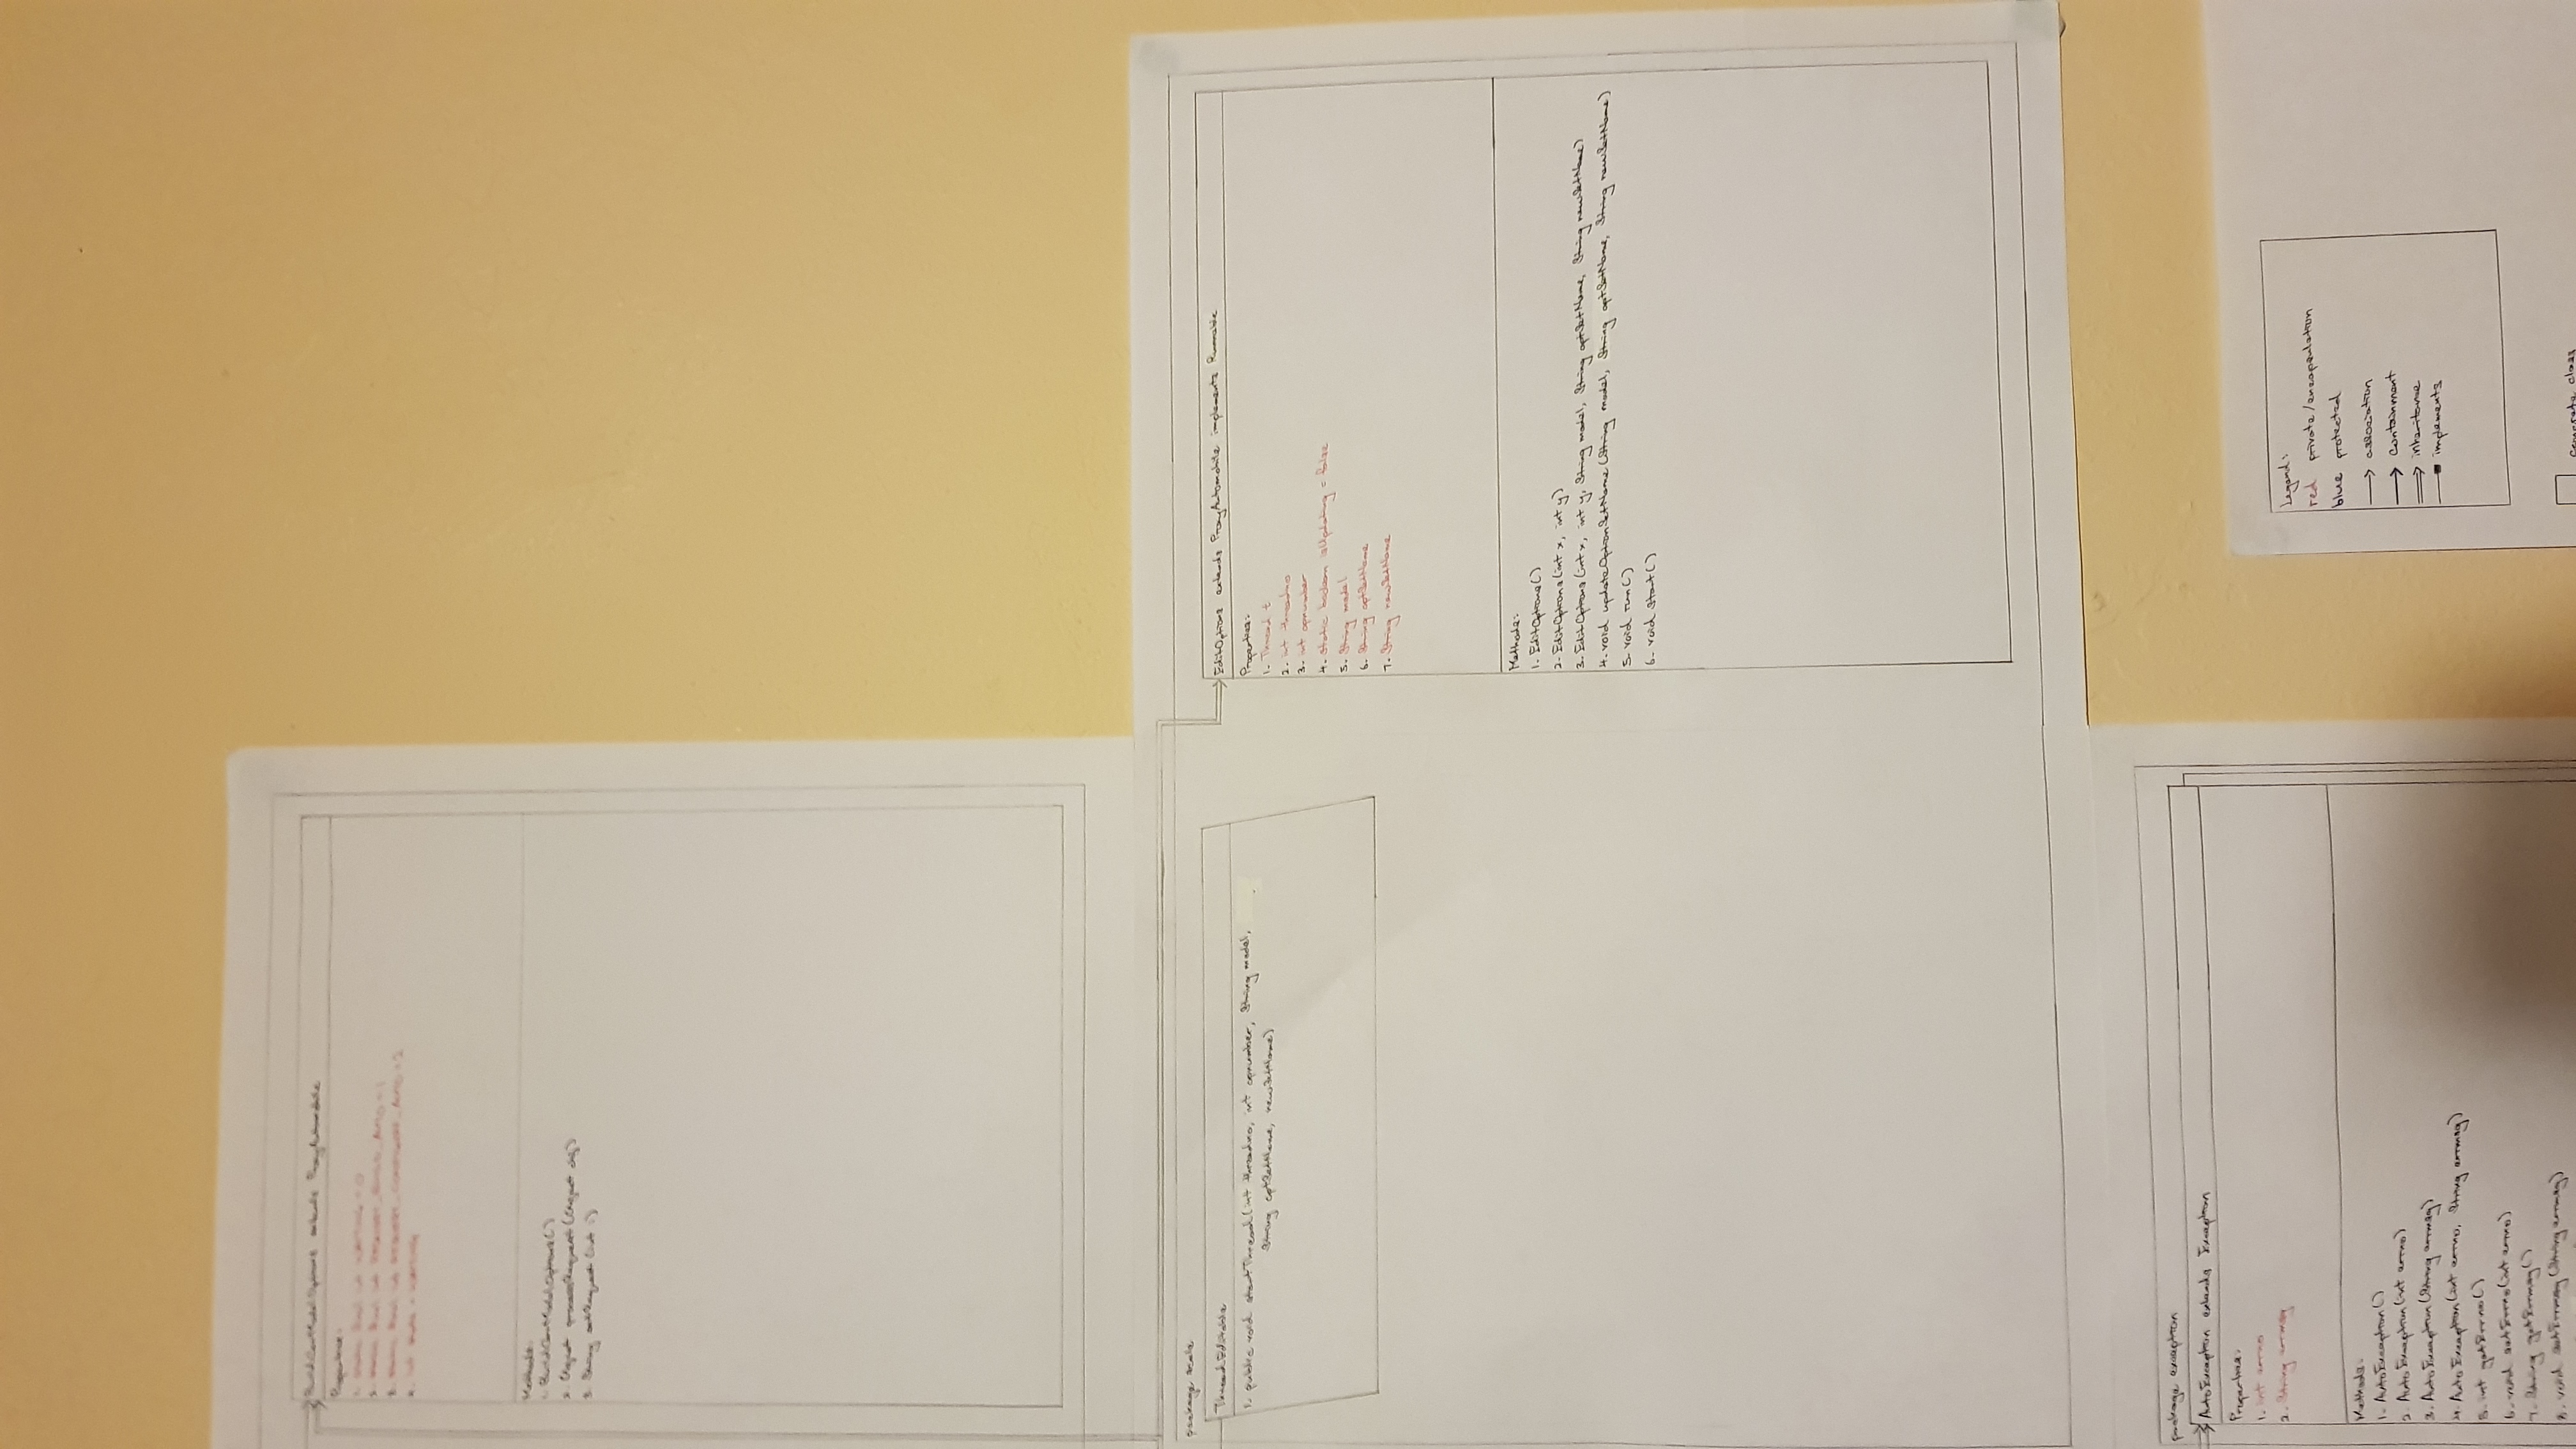 BuildCarModelOptions extends ProxyAutomobile
Properties:
1. static final int WAITING = 0
2. static final int REQUEST_BUILD_AUTO = 1
3. static final int REQUEST_CONFIGURE_AUTO = 2
4. int state = WAITING
Methods:
1. BuildCarModelOptions()
2. Object processRequest(Object obj)
3. String setRequest(int i)
package scale
ThreadEditable
1. public void startThread(int threadno, int opnumber, String model,
String optSetName, newSetName)
EditOptions extends ProxyAutomobile implements Runnable
Properties:
1. Thread t
2. int threadno
3. int opnumber
4. static boolean isUpdating = false
5. String model
6. String optSetName
7. String newSetName
Methods:
1. EditOptions()
2. EditOptions(int x, int y)
3. EditOptions(int x, int y, String model, String optSetName, String newSetName)
4. void updateOptionSetName(String model, String optSetName, String newSetName)
5. void run()
6. void start()
package exception
AutoException extends Exception
Properties:
1. int errno
2. String errmsg
Methods:
1. AutoException()
2. AutoException(int errno)
3. AutoException(String errmsg)
4. AutoException(int errno, String errmsg)
5. int getErrno()
6. void setErrno(int errno)
7. String getErrmsg()
8. void setErrmsg(String errmsg)
Legend:
red private/encapsulation
blue protected
association
containment
inheritance
implements
concrete class